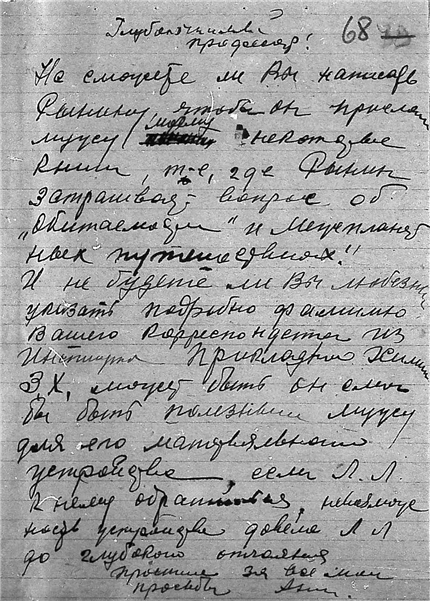 Глубокочтимый
профессор!
68
Не сможете ли Вы написать
Рынину чтобы он прислал
мужу моему некоторые
книги, т-е, где Рынин
затрагивает вопрос об
"обитаемости" и Межпланет
ных путешествиях!!
И не будете ли Вы любезны
указать подробно фамилию
Вашего корреспондента из
Института Прикладной Химии
З Х, может быть он смог
бы быть полезным мужу
для его материального
устройства, если Л. Л.
к нему обратится,
ность устройства довела Л Л
до глубокого отчаяния
Простите за все мои
просьбы